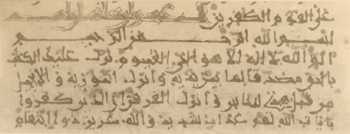 على القوم الكفرين
بسم الله الرحمن الرحيم
الم الله لا اله الا هو الحي القيوم نزل عليك الكتب
بالحق مصدقا لما بين يديه وانزل التورية والانجيل
من قبل هدى للناس وانزل الفرقان ان الذين كفروا
بايت الله لهم عذاب شديد والله عزيز ذو انتقام